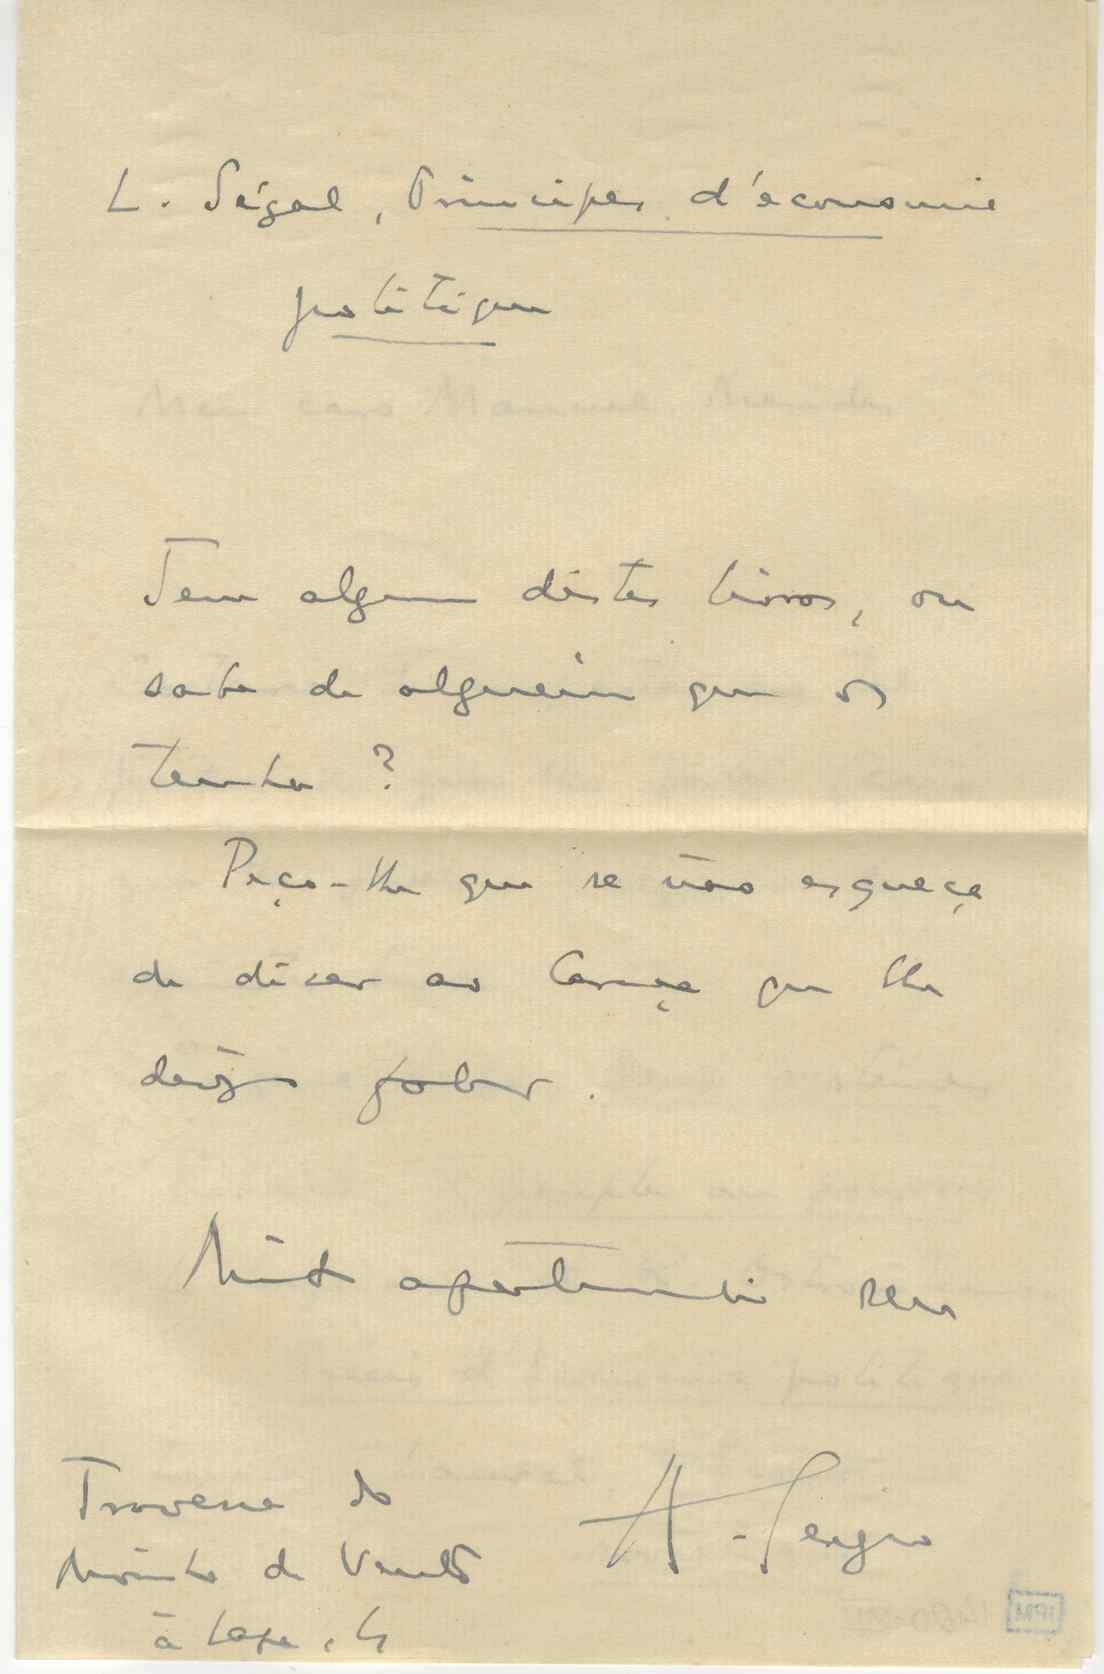 L. Ségal, Principes d'économie
politique
Tem algum dêstes livros, ou
sabe de alguém que os
tenha?
Peço-lhe que se não esqueça
de dizer ao Caraça que lhe
desejo falar.
Muito apertadamente seu
A. Sérgio
Travessa do
Moinho de Vento
à Lapa, 4